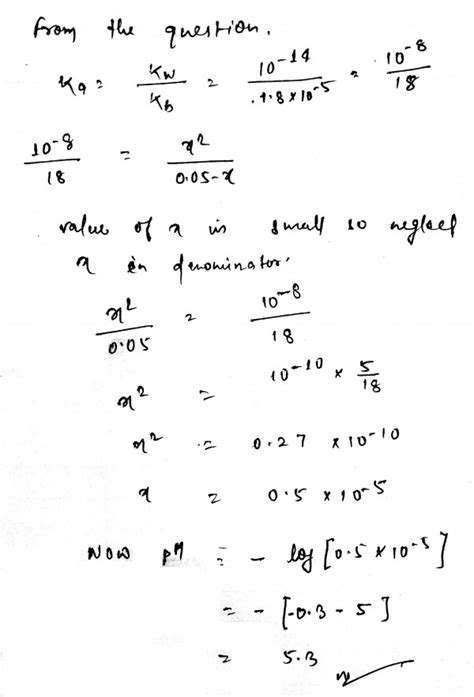 From the question.
Ka = Kw / Kb = 10^-14 / 1.8 × 10^-5 = 10^-8 / 18
10^-8 / 18 = x² / 0.05-x
value of x is small so neglect
x in denominator.
x² / 0.05 = 10^-8 / 18
x² = 10^-10 × 5/18
x² = 0.27 × 10^-10
x = 0.5 × 10^-5
Now pH = - log [0.5 × 10^-5]
= - [-0.3 - 5]
= 5.3